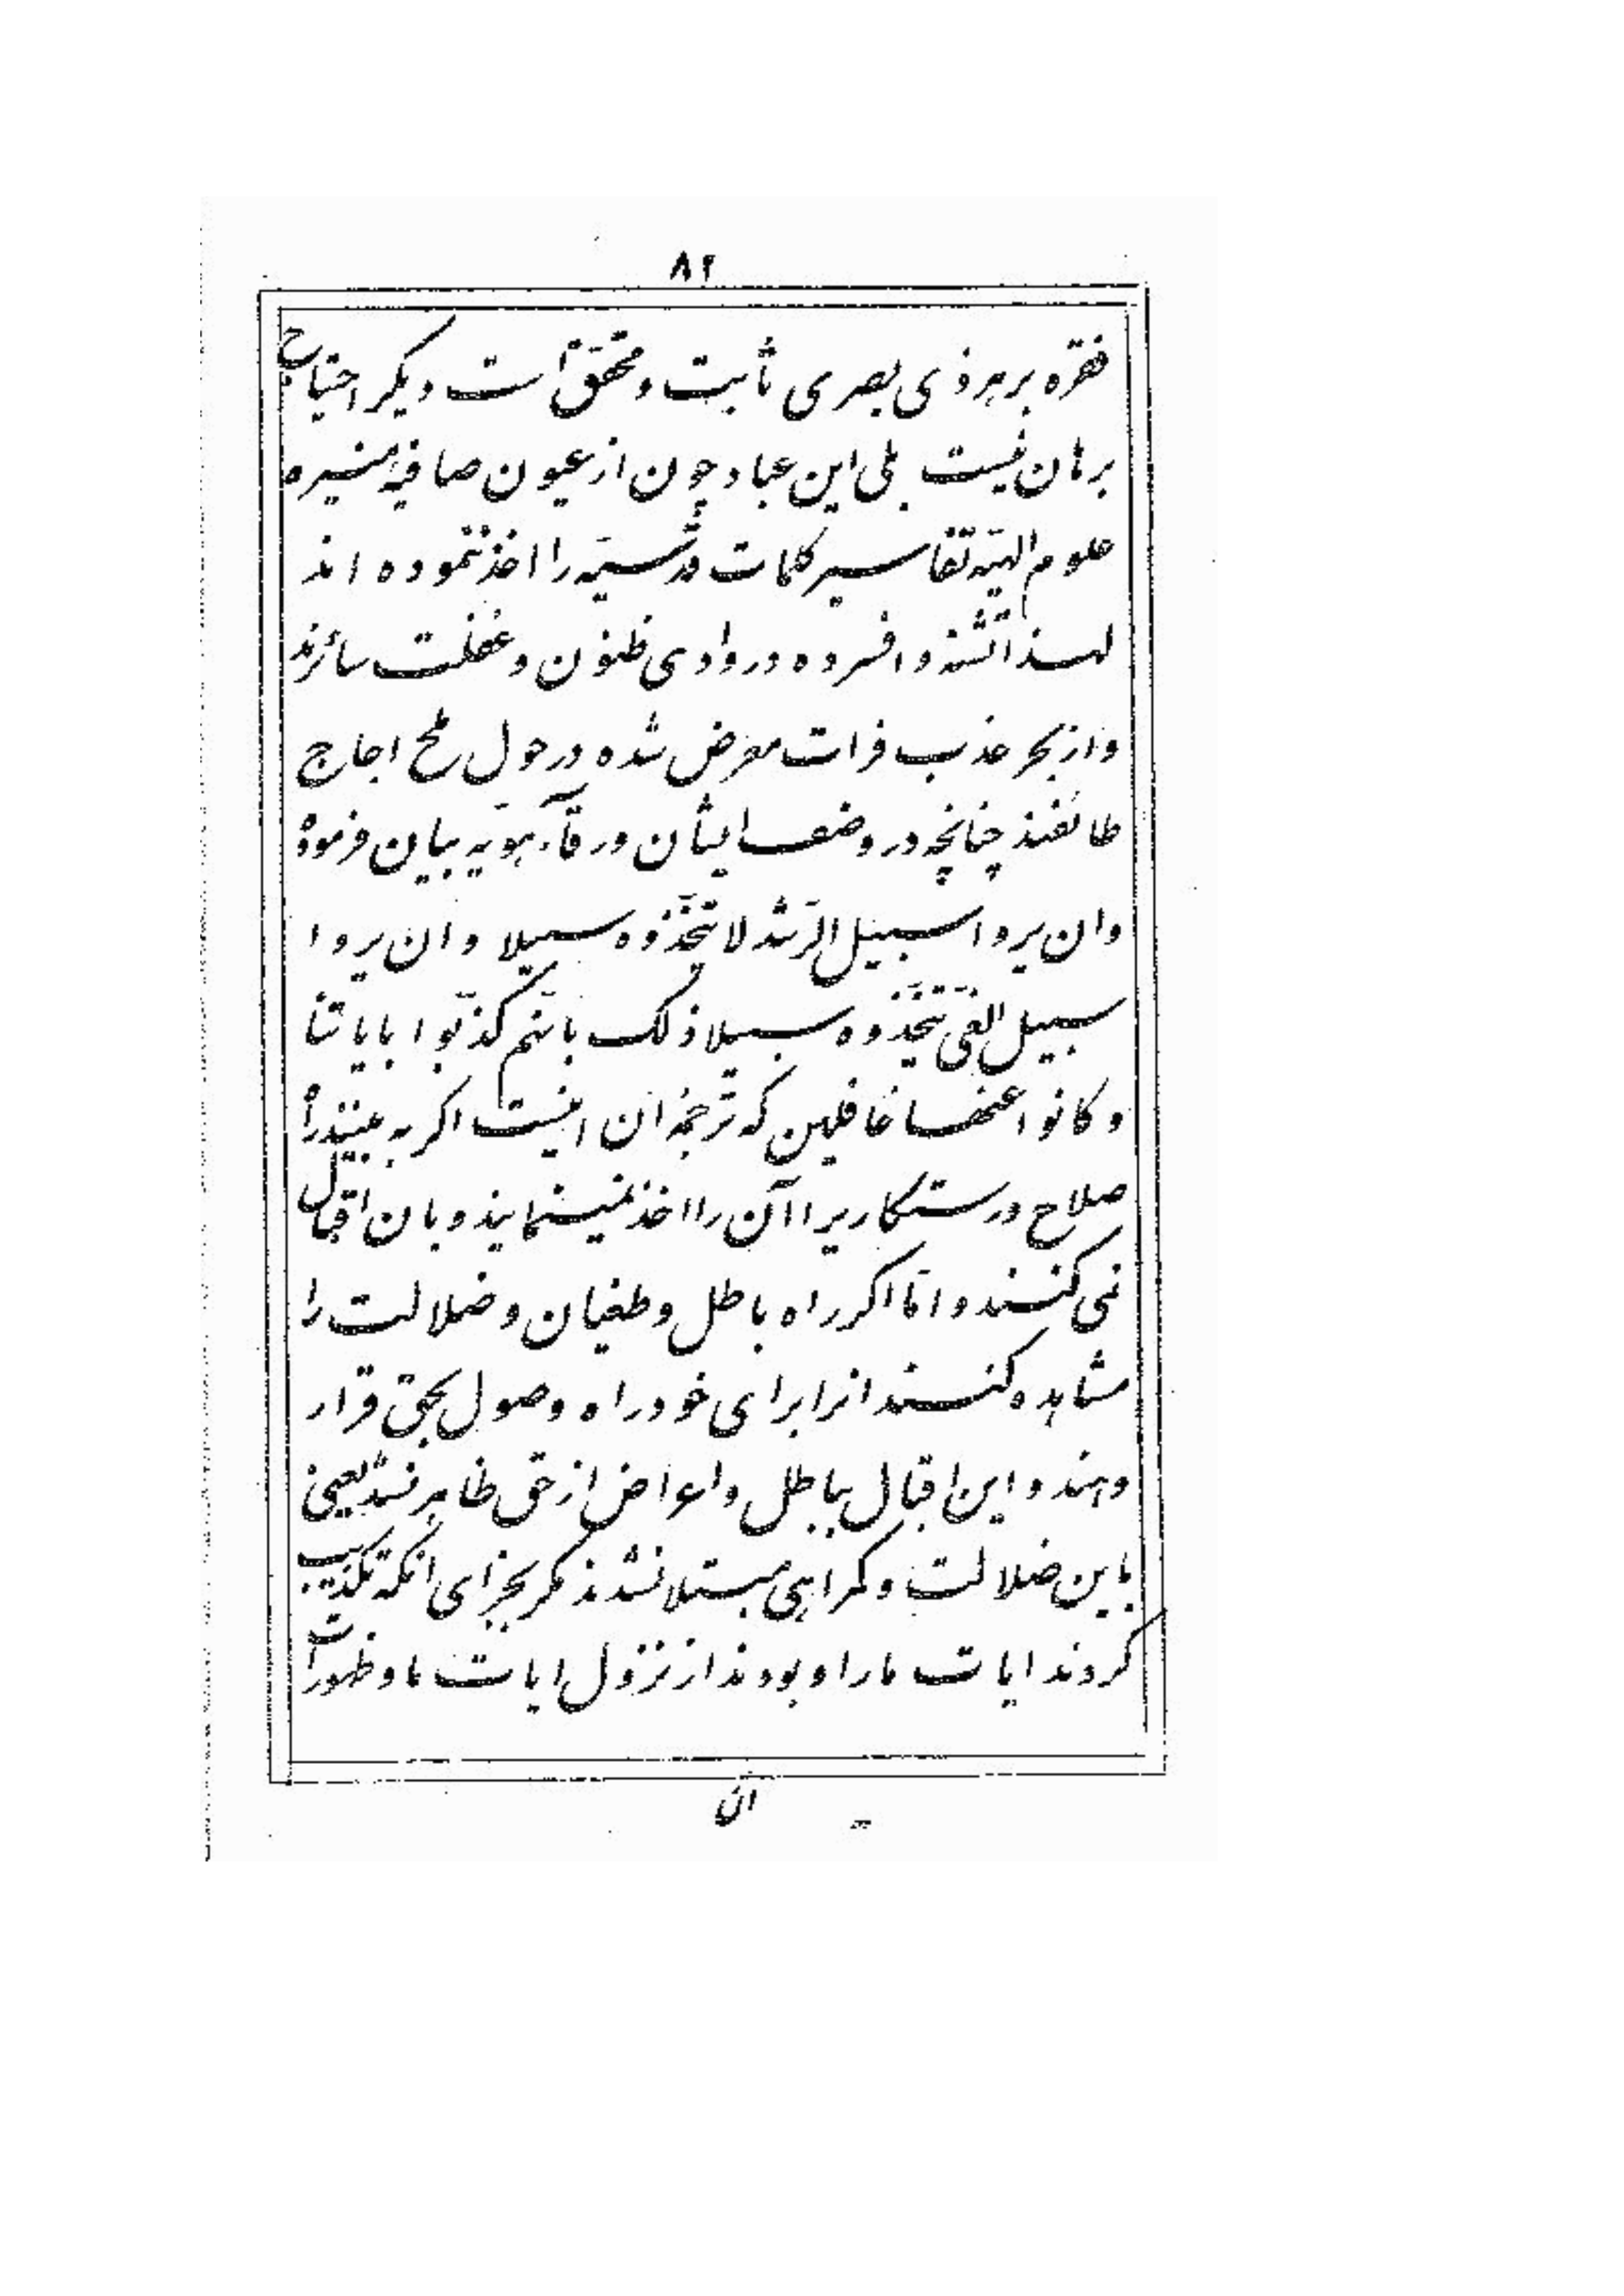 ۸۲
فقره بر هر ذی بصری ثابت و محقّق است دیگر احتیاج
برهان نیست بلی این عباد چون از عیون صافیهٔ منیره
علوم الهیّه تفاسیر کلمات قدسیّه را اخذ ننموده اند
لهذا تشنه و افسرده در وادی ظنون و غفلت سائرند
و از بحر عذب فرات معرض شده در حول ملح اجاج
طائفند چنانچه در وصف ایشان ورقآء هویّه بیان فرموده
و ان یروا سبیل الرّشد لا یتّخذوه سبیلا و ان یروا
سبیل الغیّ یتّخذوه سبیلا ذلک بانّهم کذّبوا بایاتنا
و کانوا عنها غافلین که ترجمهٔ ان اینست اکر به بینند راه
صلاح و رستکاریرا آن را اخذ نمینمایند و بان اقبال
نمی کنند و امّا اکر راه باطل و طغیان و ضلالت را
مشاهده کنند انرا برای خود راه وصول بحق قرار
دهند و این اقبال بباطل و اعراض از حق ظاهر نشد یعنی
باین ضلالت و کمراهی مبتلا نشدند مکر بجزای انکه تکذیب
کردند ایات ما را و بودند از نزول ایات ما و ظهورات
ان